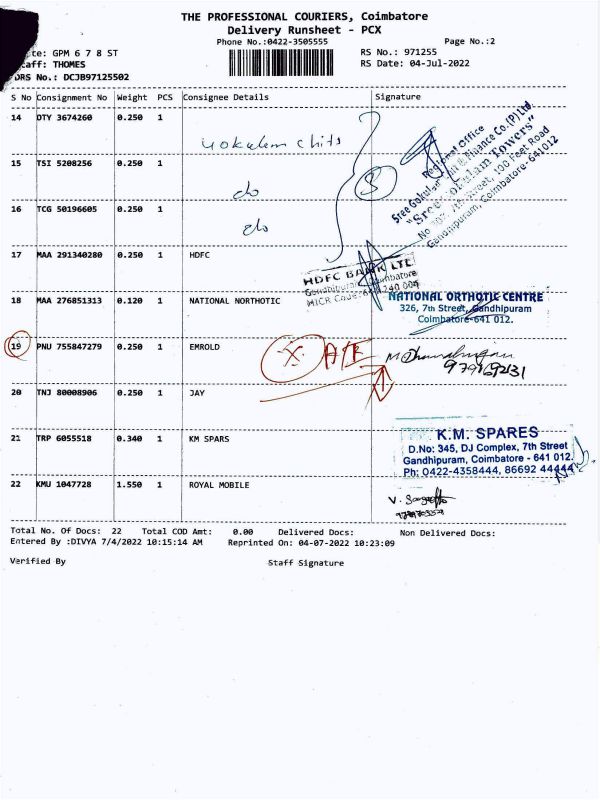 THE PROFESSIONAL COURIERS, Coimbatore
Delivery Runsheet - PCX
Phone No.:0422-3505555
Page No.:2
te: GPM 6 7 8 ST
RS No.: 971255
taff: THOMES
RS Date: 04-Jul-2022
DRS No.: DCJB97125502
S No Consignment No Weight PCS Consignee Details Signature
14 OTY 3674260 0.250 1
15 TSI 5208256 0.250 1 do
16 TCG 50196605 0.250 1 do
Regional Office
Sree Gokulam & Finance Co.(P) Ltd.
"Sree Gokulam Towers"
7th Street, 100 Feet Road
Gandhipuram, Coimbatore-641012
17 MAA 291340280 0.250 1 HDFC
HDFC BANK LTD
Gandhipuram Coimbatore
MICR Code:
18 MAA 276851313 0.120 1 NATIONAL NORTHOTIC
NATIONAL ORTHOTIC CENTRE
326, 7th Street, Gandhipuram
Coimbatore-641 012.
19 PNU 755847279 0.250 1 EMROLD
20 TNJ 80008906 0.250 1 JAY
21 TRP 6055518 0.340 1 KM SPARS
K.M. SPARES
D.No: 345, DJ Complex, 7th Street
Gandhipuram, Coimbatore - 641 012.
Ph: 0422-4358444, 86692 44444
22 KMU 1047728 1.550 1 ROYAL MOBILE
Total No. Of Docs: 22 Total COD Amt: 0.00 Delivered Docs: Non Delivered Docs:
Entered By :DIVYA 7/4/2022 10:15:14 AM Reprinted On: 04-07-2022 10:23:09
Verified By Staff Signature